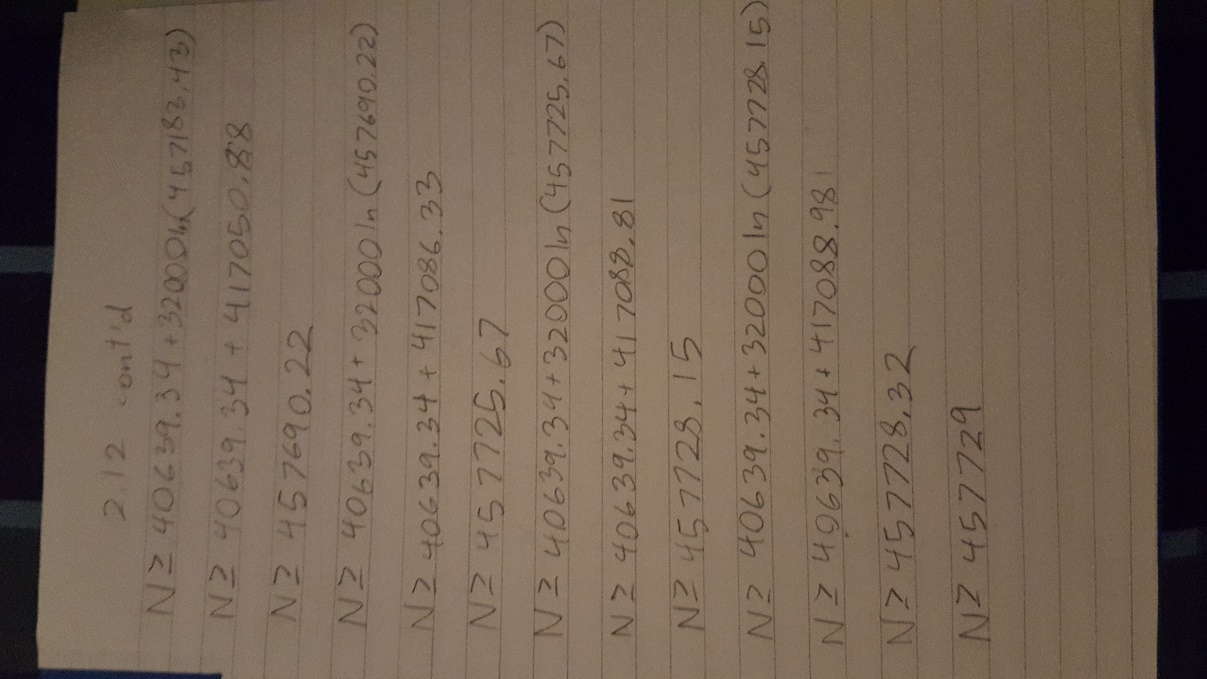 2.12 cont'd
N ≥ 40639.34 + 32000 ln(457183.43)
N ≥ 40639.34 + 417050.88
N ≥ 457690.22
N ≥ 40639.34 + 32000 ln(457690.22)
N ≥ 40639.34 + 417086.33
N ≥ 457725.67
N ≥ 40639.34 + 32000 ln(457725.67)
N ≥ 40639.34 + 417088.81
N ≥ 457728.15
N ≥ 40639.34 + 32000 ln(457728.15)
N ≥ 40639.34 + 417088.981
N ≥ 457728.32
N ≥ 457729